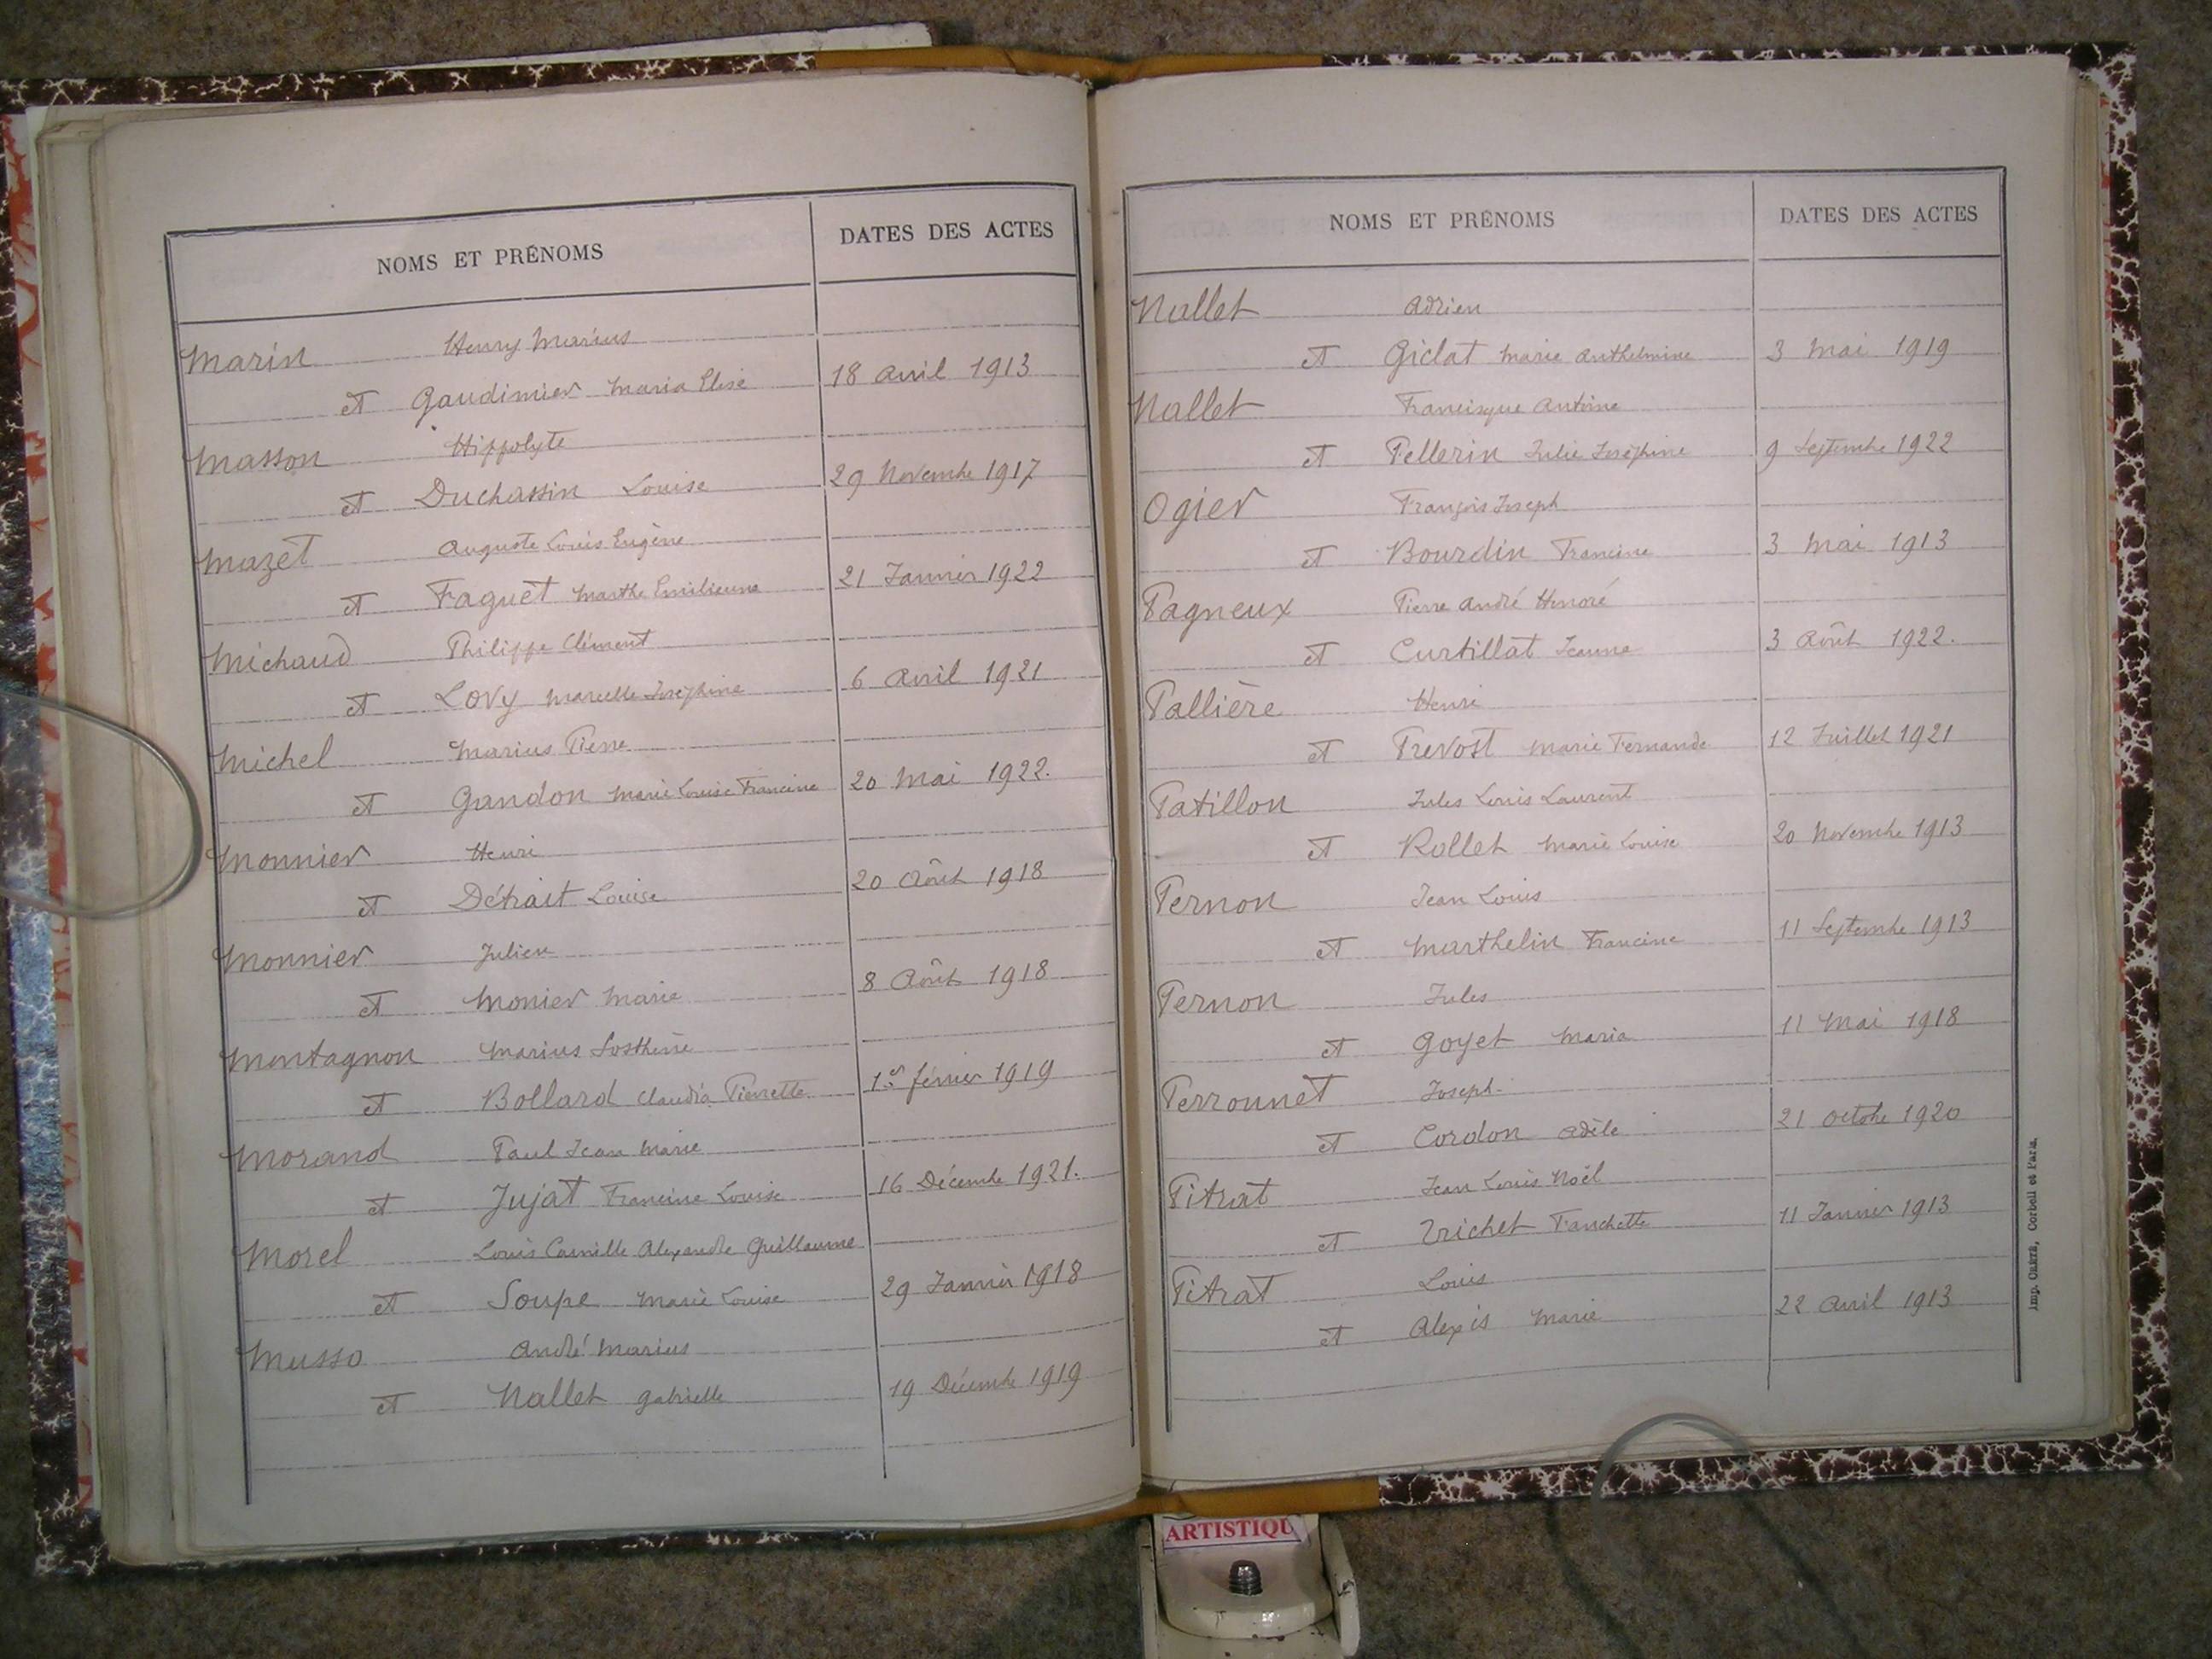 NOMS ET PRÉNOMS DATES DES ACTES
Marin Henry Marius
et Gaudimier Maria Elise 18 Avril 1913
Masson Hippolyte
et Duchassin Louise 29 Novembre 1917
Mazet Auguste Louis Eugène
et Faguet Marthe Emilienne 21 Janvier 1922
Michaud Philippe Clément
et Lovy Marcelle Joséphine 6 Avril 1921
Michel Marius Pierre
et Gandon Marie Louise Francine 20 Mai 1922.
Monnier Henri
et Détrait Louise 20 Août 1918
Monnier Julien
et Monier Marie 8 Août 1918
Montagnon Marius Sosthène
et Bollard Claudia Pierrette 1er février 1919
Morand Paul Jean Marie
et Jujat Francine Louise 16 Décembre 1921.
Morel Louis Camille Alexandre Guillaume
et Soupe Marie Louise 29 Janvier 1918
Musso André Marius
et Nallet Gabrielle 19 Décembre 1919
NOMS ET PRÉNOMS DATES DES ACTES
Nallet Adrien
et Giclat Marie Anthelmine 3 Mai 1919
Nallet Francisque Antoine
et Pellerin Julie Joséphine 9 Septembre 1922
Ogier François Joseph
et Bourdin Francine 3 Mai 1913
Pagneux Pierre André Honoré
et Curtillat Jeanne 3 Août 1922.
Pallière Henri
et Prevost Marie Fernande 12 Juillet 1921
Patillon Jules Louis Laurent
et Rollet Marie Louise 20 Novembre 1913
Pernon Jean Louis
et Marthelin Francine 11 Septembre 1913
Pernon Jules
et Goyet Maria 11 Mai 1918
Perrounet Joseph
et Cordon Adèle 21 Octobre 1920
Pitrat Jean Louis Noël
et Trichet Fanchette 11 Janvier 1913
Pitrat Louis
et Alexis Marie 22 Avril 1913
Imp. CRÉTÉ, Corbeil et Paris.
ARTISTIQU